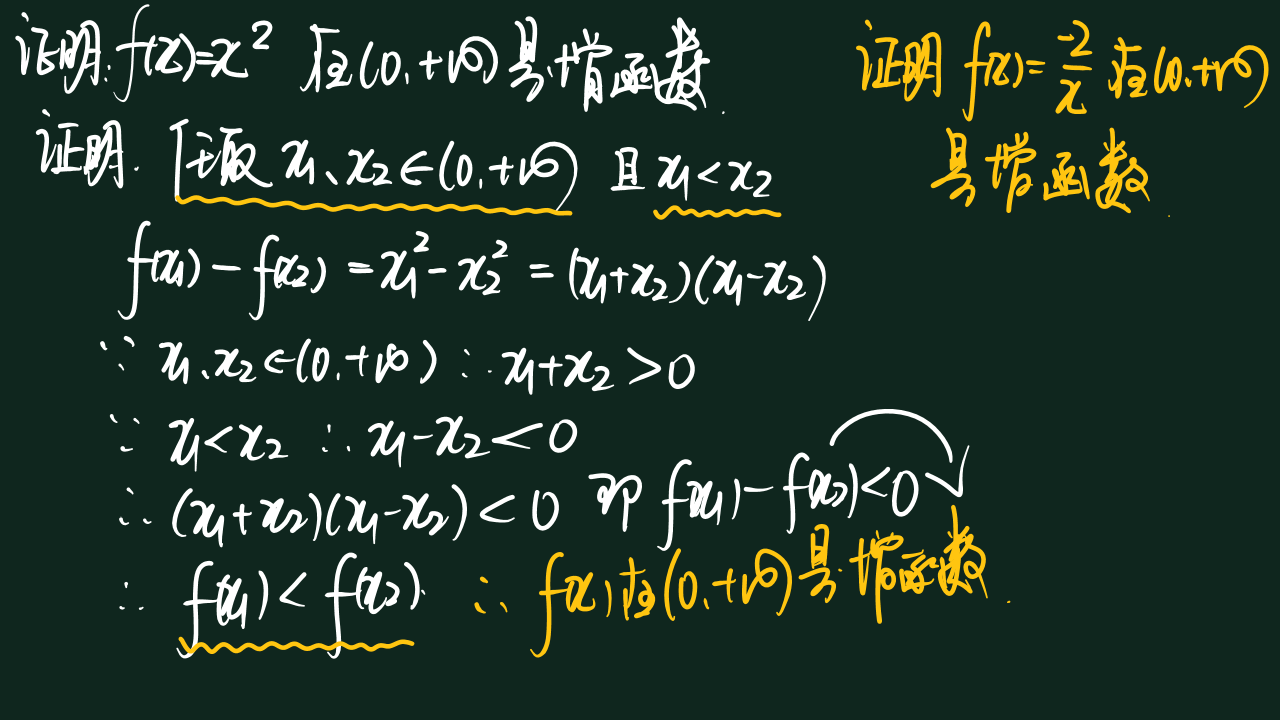 证明:f(x)=x² 在(0,+∞)是增函数.
证明.任取 x₁、x₂∈(0,+∞) 且 x₁<x₂
f(x₁)-f(x₂)=x₁²-x₂²=(x₁+x₂)(x₁-x₂)
∵ x₁、x₂∈(0,+∞) ∴ x₁+x₂>0
∵ x₁<x₂ ∴ x₁-x₂<0
∴ (x₁+x₂)(x₁-x₂)<0 即 f(x₁)-f(x₂)<0
∴ f(x₁)<f(x₂). ∴ f(x)在(0,+∞)是增函数.
证明 f(x)=-2/x 在(0,+∞)
是增函数.